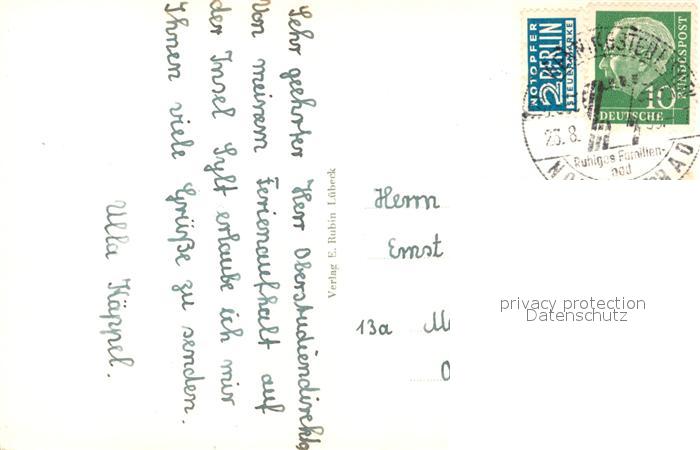 Sehr geehrter Herr Oberstudiendirektor
Von meinem Ferienaufhalt auf
der Insel Sylt erlaube ich mir
Ihnen viele Grüße zu senden.
Ulla Käppel.
Verlag E. Rubin Lübeck
NOTOPFER
2 BERLIN
STEUERMARKE
10
DEUTSCHE
BUNDESPOST
23.8.
Ruhiges Familien-
bad
Herrn
Ernst
13a
privacy protection
Datenschutz